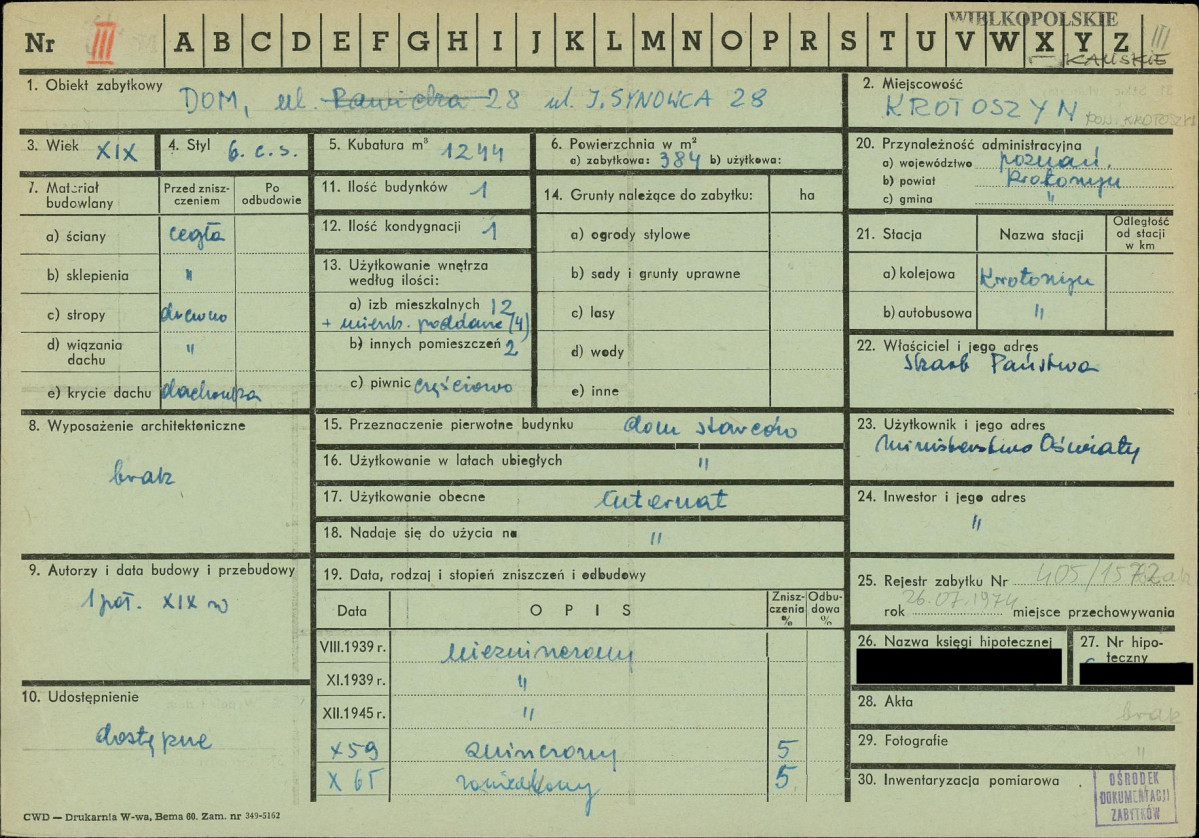 WIELKOPOLSKIE
Nr III A B C D E F G H I J K L M N O P R S T U V W X Y Z III
KALISKIE
1. Obiekt zabytkowy
DOM, ul. Rawicka 28 ul. J. SYNOWCA 28
2. Miejscowość
KROTOSZYN
pow. KROTOSZYN
3. Wiek XIX
4. Styl b. c. s.
5. Kubatura m³ 1244
6. Powierzchnia w m²
a) zabytkowa: 384 b) użytkowa:
20. Przynależność administracyjna
a) województwo poznań.
b) powiat Krotoszyn
c) gmina "
7. Materiał budowlany
Przed zniszczeniem
Po odbudowie
a) ściany cegła
b) sklepienia "
c) stropy drewno
d) wiązania dachu "
e) krycie dachu dachówka
11. Ilość budynków 1
12. Ilość kondygnacji 1
13. Użytkowanie wnętrza według ilości:
a) izb mieszkalnych 12
+ mieszk. poddasze (4)
b) innych pomieszczeń 2
c) piwnic częściowo
14. Grunty należące do zabytku: ha
a) ogrody stylowe
b) sady i grunty uprawne
c) lasy
d) wody
e) inne
21. Stacja
Nazwa stacji
Odległość od stacji w km
a) kolejowa Krotoszyn
b) autobusowa "
22. Właściciel i jego adres
Skarb Państwa
8. Wyposażenie architektoniczne
brak
15. Przeznaczenie pierwotne budynku dom starców
16. Użytkowanie w latach ubiegłych "
17. Użytkowanie obecne Internat
18. Nadaje się do użycia na "
23. Użytkownik i jego adres
Ministerstwo Oświaty
24. Inwestor i jego adres
"
9. Autorzy i data budowy i przebudowy
1 poł. XIX w
19. Data, rodzaj i stopień zniszczeń i odbudowy
Data
O P I S
Zniszczenia %
Odbudowa %
VIII.1939 r. niezniszczony
XI.1939 r. "
XII.1945 r. "
X 59 zniszczony 5
X 65 zaniedbany 5
10. Udostępnienie
dostępne
25. Rejestr zabytku Nr 405/1572
rok 26.07.1974 miejsce przechowywania
26. Nazwa księgi hipotecznej
27. Nr hipoteczny
28. Akta brak
29. Fotografie "
30. Inwentaryzacja pomiarowa
OŚRODEK
DOKUMENTACJI
ZABYTKÓW
CWD — Drukarnia W-wa, Bema 60. Zam. nr 349-5162